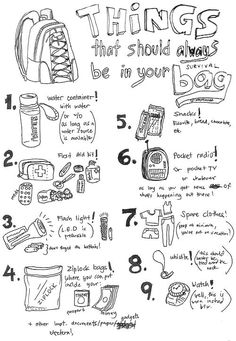 THINGS
that should always
be in your
SURVIVAL
bag
1.
water container!
with water
or w/o
as long as a
water source
is available!
2.
First Aid kit!
3.
Flash light!
L.E.D is
preferable
don't forget the batteries!
4.
Ziplock bags!
where you can
put inside
your:
ZIPLOCK
passports
money
gadgets
+ other impt. documents/papers
5.
Snacks!
Biscuits, bread, chocolate,
etc.
6.
Pocket radio!
or pocket TV
or whatever
as long as you get news of
what's happening out there!
7.
Spare clothes!
8.
whistle!
this should
be around the neck.
9.
Watch!
well, this is
worn